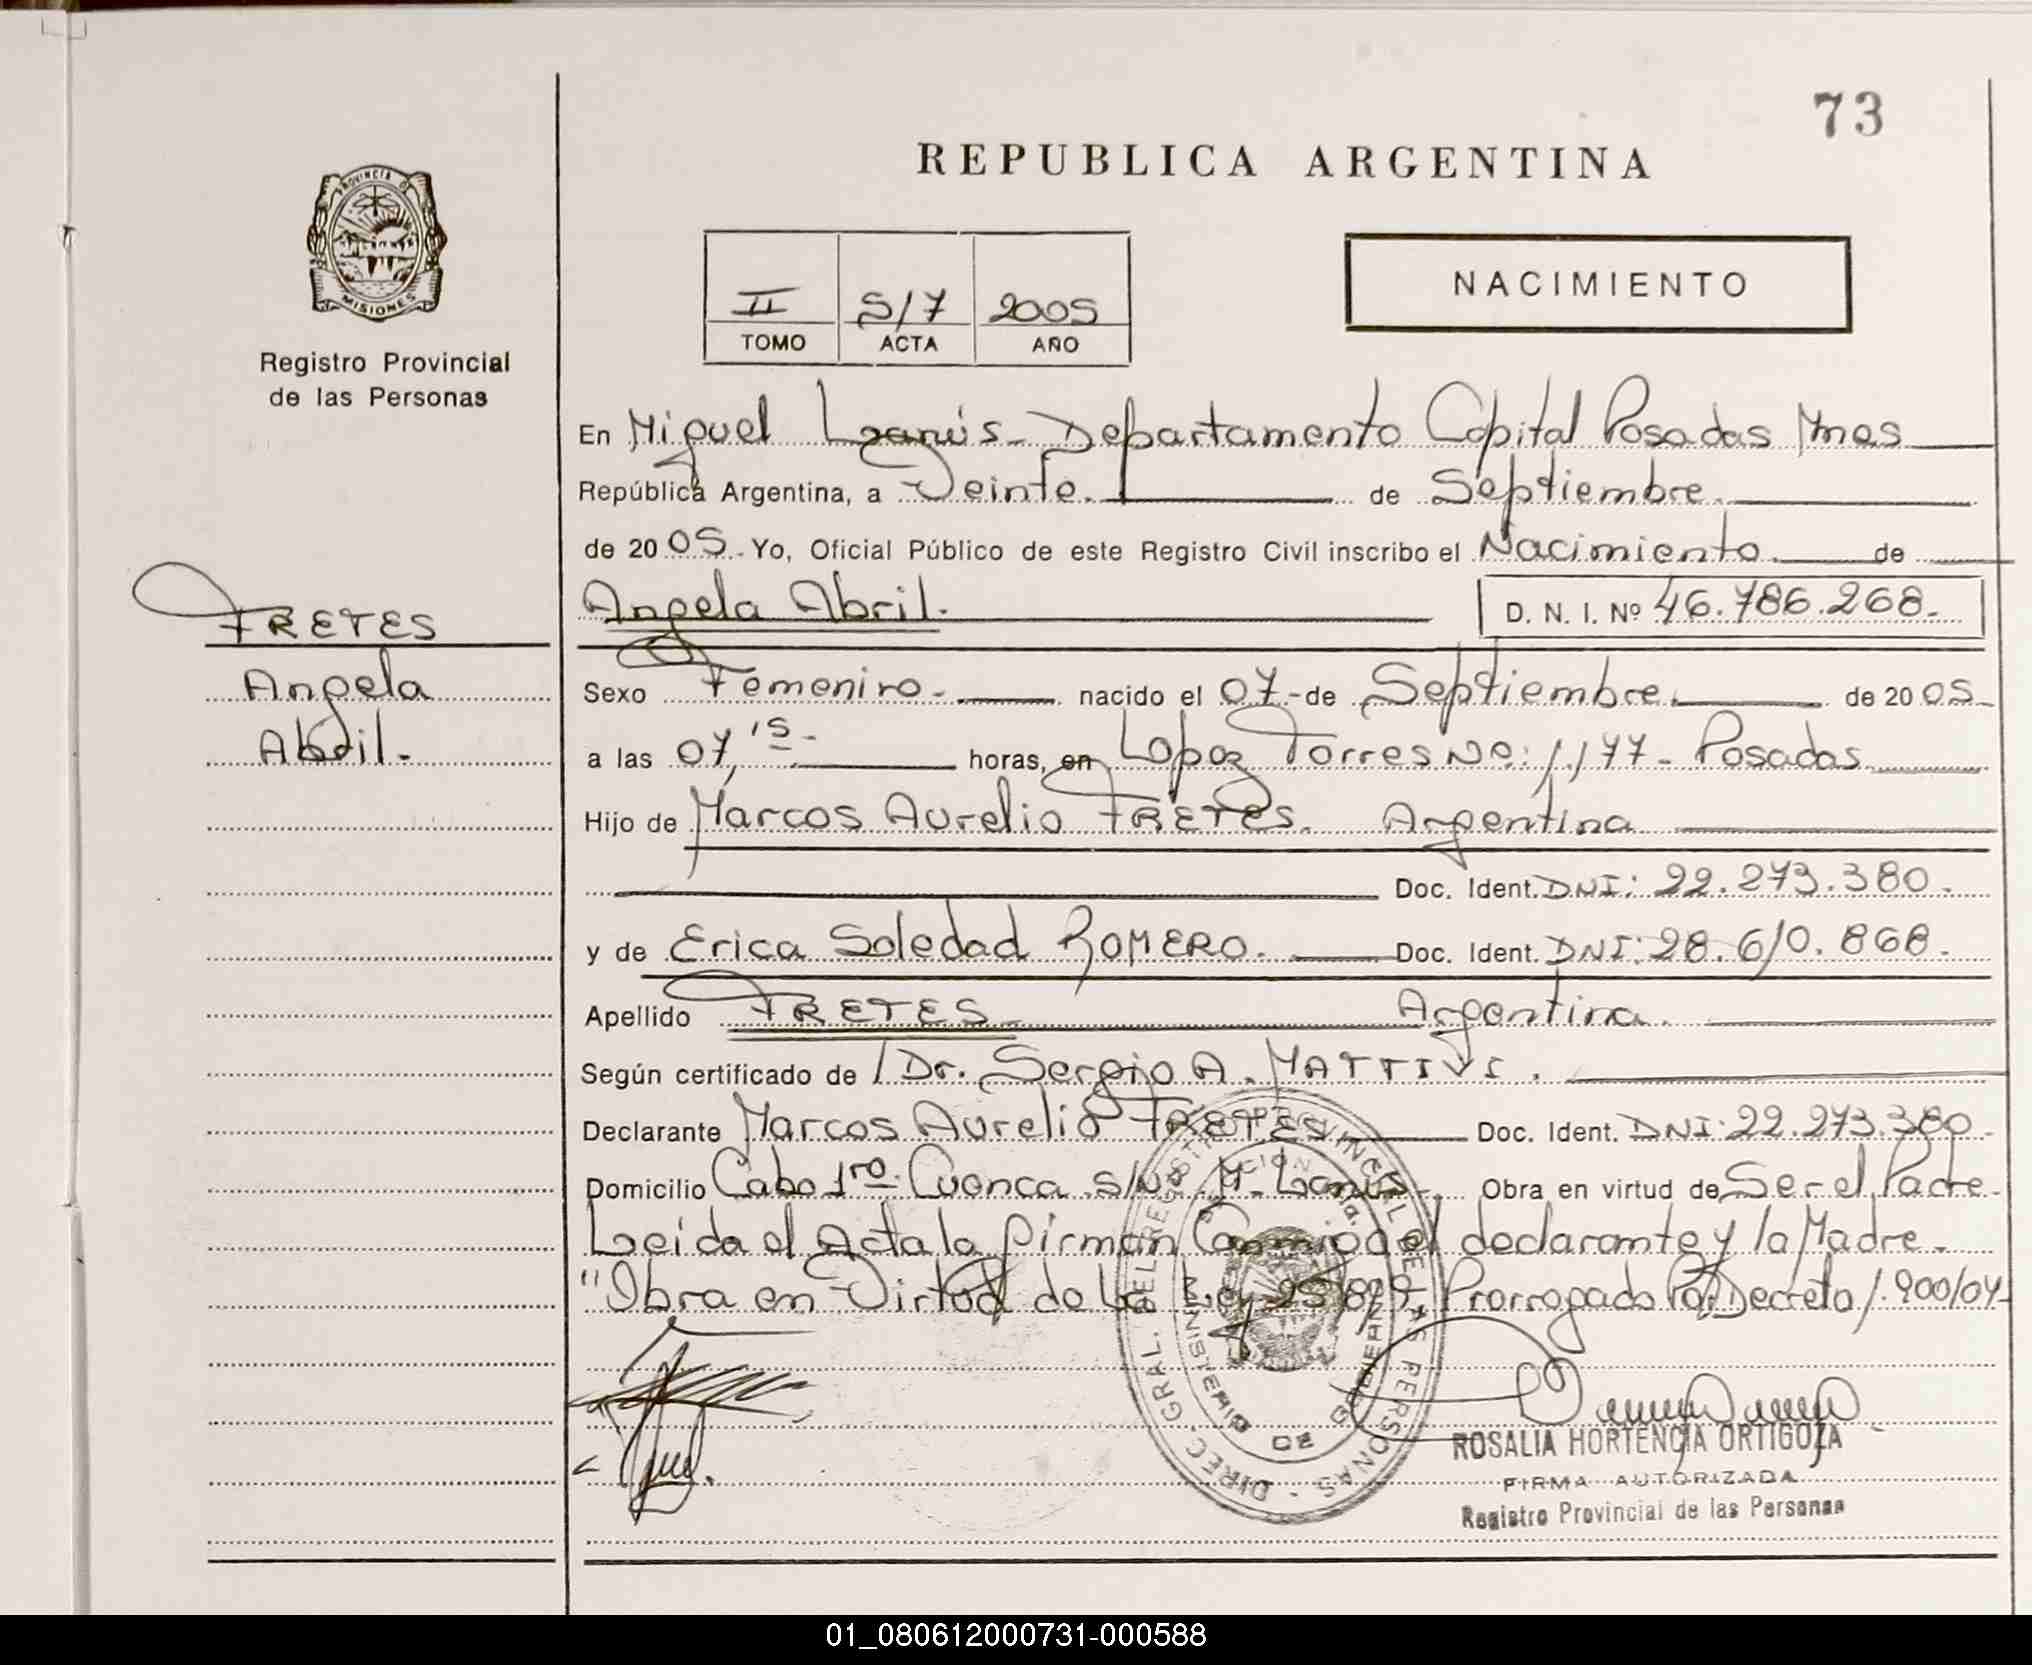 73
REPUBLICA ARGENTINA
PROVINCIA DE
MISIONES
Registro Provincial
de las Personas
II S/7 2005
TOMO ACTA AÑO
NACIMIENTO
En Miguel Lanus - Departamento Capital Posadas Mnes
República Argentina, a Veinte. de Septiembre.
de 2005. Yo, Oficial Público de este Registro Civil inscribo el Nacimiento. de
FRETES
Angela Abril. D. N. I. Nº 46.786.268.-
Angela
Abril.-
Sexo Femenino.- nacido el 07-de Septiembre. de 2005-
a las 07,15.- horas, en Lopez Torres No: 1.177- Posadas
Hijo de Marcos Aurelio FRETES. Argentina
Doc. Ident. DNI: 22.273.380.
y de Erica Soledad ROMERO. Doc. Ident. DNI: 28.610.868.
Apellido FRETES Argentina.
Según certificado de / Dr. Sergio A. MATTIVI.
Declarante Marcos Aurelio FRETES Doc. Ident. DNI: 22.273.380.
Domicilio Cabo 1ro Cuenca s/nº M. Lanus Obra en virtud de Ser el Padre.
Leida el Acta la firman Conmigo el declarante y la Madre.
"Obra en Virtud de la Ley 25.819 Prorrogado Por Decreto 1.900/04-
DIREC. GRAL. DEL REGISTRO PROVINCIAL DE LAS PERSONAS
MINISTERIO DE GOBIERNO
ROSALIA HORTENCIA ORTIGOZA
FIRMA AUTORIZADA
Registro Provincial de las Personas
01_080612000731-000588